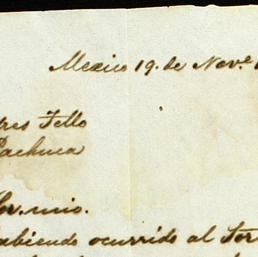 Mexico 19. de Nov.e
res Tello
Pachuca
or. mio.
abiendo ocurrido al